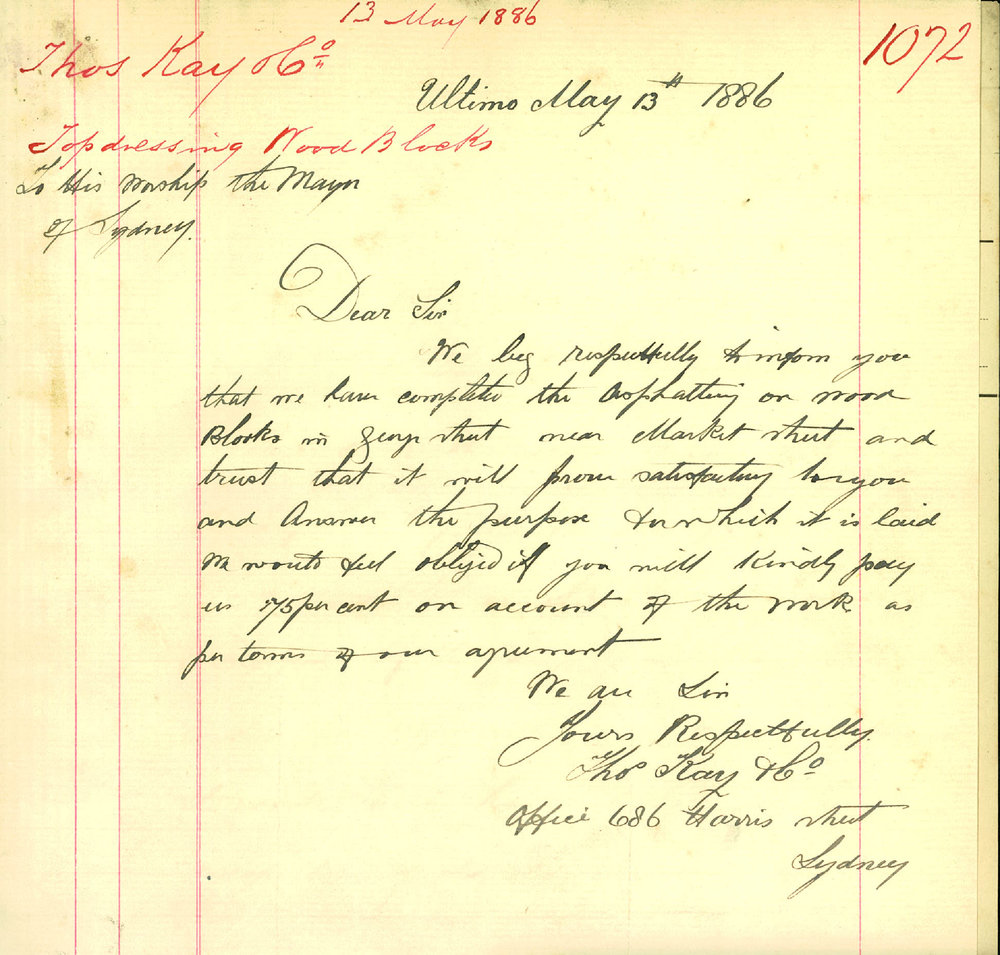 13 May 1886
1072
Thos Kay & Co
Ultimo May 13th 1886
Topdressing Wood Blocks
To His Worship the Mayor
of Sydney.
Dear Sir
We beg respectfully to inform you
that we have completed the Asphalting on wood
Blocks in George street near Market street and
trust that it will prove satisfactory to you
and Answer the purpose for which it is laid
We would feel obliged if you will Kindly pay
us 75 per cent on account of the work as
per terms of our agreement
We are Sir
Yours Respectfully.
Thos Kay & Co
Office 686 Harris street
Sydney